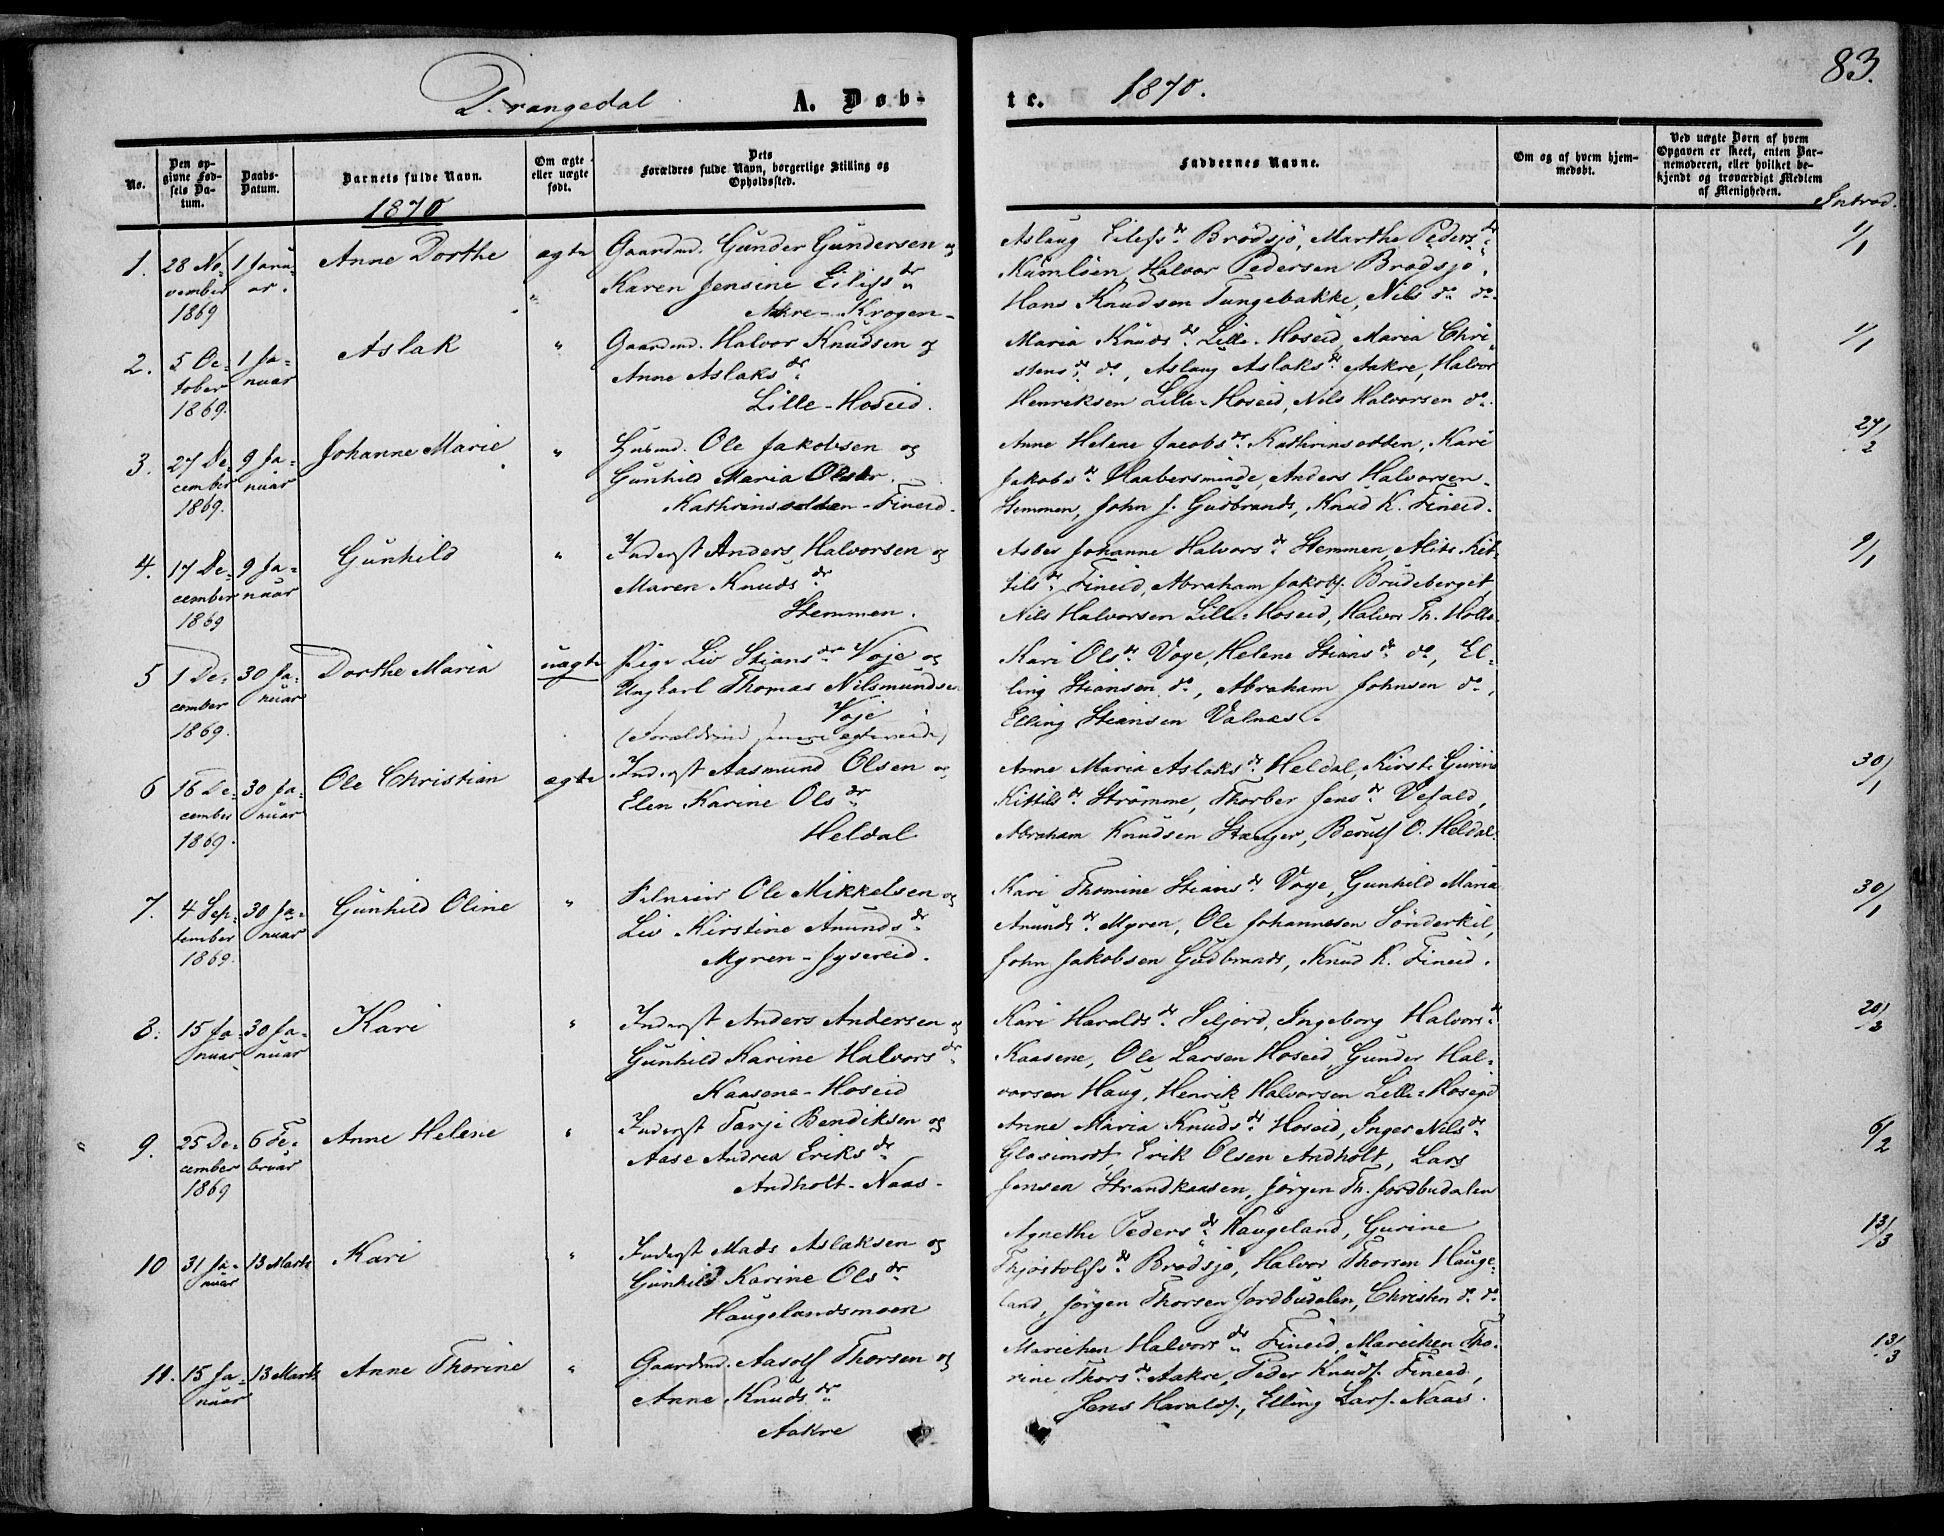 83.
Drangedal A. Døb-
te. 1870.
No.
Den op-
givne Fød-
sels Da-
tum.
Daabs-
Datum.
Barnets fulde Navn.
Om ægte
eller uægte
født.
Dets
Forældres fulde Navn, borgerlige Stilling og
Opholdssted.
Faddernes Navne.
Om og af hvem hjem-
medøbt.
Ved uægte Børn af hvem
Opgaven er skeet, enten Bar-
nemoderen, eller hvilket be-
kjendt og troværdigt Medlem
af Menigheden.
Introd.
1870
1. 28 No-
vember
1869
1 Janu-
ar.
Anne Dorthe
ægte
Gaardmd. Gunder Gundersen og
Karen Jensine Eilifsdr
Aakre-Krogen-
Aslaug Eilefsdr Brødsjø, Marthe Pedersdr
Kumlien, Halvor Pedersen Brødsjø,
Hans Knudsen Tungebakke, Nils do do
1/1
2. 5 Oc-
tober
1869.
1 Ja-
nuar
Aslak
"
Gaardmd. Halvor Knudsen og
Anne Aslaksdr
Lille-Hoseid.
Maria Knudsdr Lille-Hoseid, Maria Chri-
stensdr do, Aslaug Aslaksdr Aakre, Halvor
Henriksen Lille-Hoseid, Nils Halvorsen do.
1/1
3. 27 De-
cember
1869.
9 Ja-
nuar
Johanne Marie
"
Husmd. Ole Jakobsen og
Gunhild Maria Olsdr.
Kathrinsodden-Fineid.
Anne Helene Jacobsdr Kathrinsodden, Kari
Jakobsdr Haabersminde, Anders Halvorsen
Stemmen, John J. Gudbrands, Knud K. Fineid.
27/2
4. 17 De-
cember
1869
9 Ja-
nuar
Gunhild
"
Inderst Anders Halvorsen og
Maren Knudsdr
Stemmen.
Asber Johanne Halvorsdr Stemmen, Alits Kit-
tilsdr Fineid, Abraham Jakobs. Brudeberget,
Nils Halvorsen Lille-Hoseid, Halvor Th. Holte
9/1
5 1 De-
cember
1869.
30 Ja-
nuar
Dorthe Maria
uægte
Pige Liv Stiansdr Voje og
Ungkarl Thomas Nilsmundsen
Voje
(Forældrene senere ægteviede)
Kari Olsdr Voge, Helene Stiansdr do, El-
ling Stiansen do, Abraham Johnsen do,
Elling Stiansen Valnæs.
6 16 De-
cember
1869.
30 Ja-
nuar
Ole Christian
ægte
Inderst Aasmund Olsen og
Elen Karine Olsdr
Heldal
Anne Maria Aslaksdr Heldal, Kirsti Gurine
Kittilsdr Strømme, Thorber Jensdr Vefald,
Abraham Knudsen Stanger, Berulf O. Heldal.
30/1
7. 4 Sep-
tember
1869.
30 Ja-
nuar
Gunhild Oline
"
Ole Mikkelsen og
Liv Kirstine Anundsdr
Myren-Jysereid.
Kari Thomine Stiansdr Voge, Gunhild Maria
Anundsdr Myren, Ole Johannesen Sönderkil,
John Jakobsen Gudbrands, Knud K. Fineid.
30/1
8. 15 Ja-
nuar
30 Ja-
nuar
Kari
"
Inderst Anders Andersen og
Gunhild Karine Halvorsdr
Kaasene-Hoseid
Kari Haraldsdr Seljord, Ingeborg Halvorsdr
Kaasene, Ole Larsen Hoseid, Gunder Hal-
vorsen Haug, Henrik Halvorsen Lille-Hoseid
20/3
9. 25 De-
cember
1869
6 Fe-
bruar
Anne Helene
"
Inderst Tarje Bendiksen og
Aase Andrea Eriksdr
Andholt-Naas-
Anne Maria Knudsdr Hoseid, Inger Nilsdr
Glasimodt, Erik Olsen Andholt, Lars
Jensen Strandkaasen, Jörgen Th. Jordbudalen
6/2
10 31 Ja-
nuar
13 Marts
Kari
"
Inderst Mads Aslaksen og
Gunhild Karine Olsdr
Haugelandsmoen
Agnethe Pedersdr Haugeland, Gurine
Thjostolfsdr Brødsjø, Halvor Thorsen Hauge-
land, Jörgen Thorsen Jordbudalen, Christen do do
13/3
11. 15 Ja-
nuar
13 Marts
Anne Thorine
"
Gaardmd. Aasolf Thorsen og
Anne Knudsdr
Aakre
Mariehen Halvorsdr Fineid, Mariehen Tho-
rine Thorsdr Aakre, Peder Knuds. Fineid,
Jens Haralds., Elling Lars. Naas.
13/3